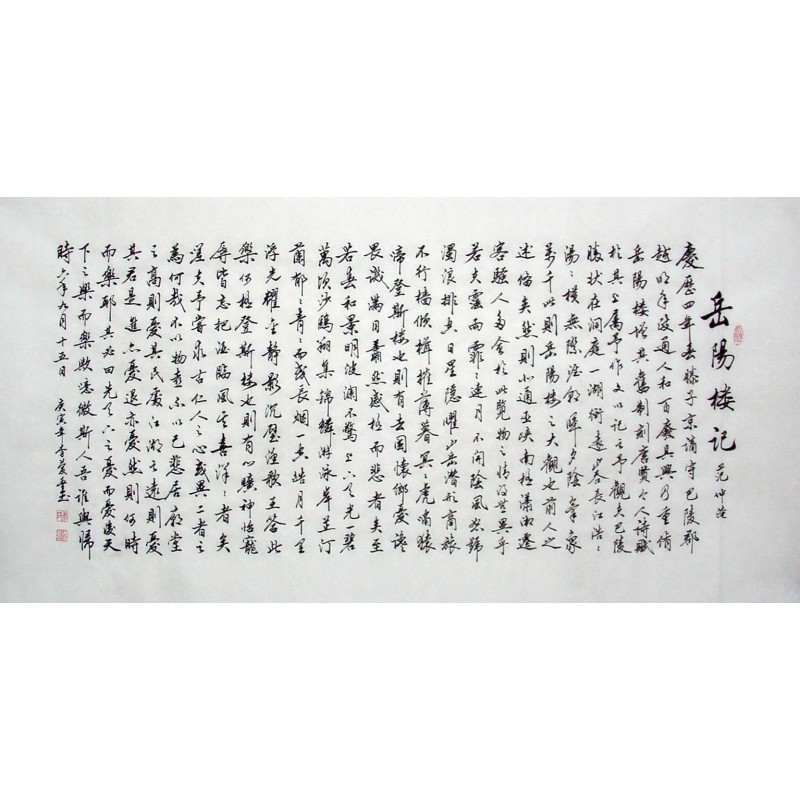 岳陽楼記
范仲淹
慶歷四年春滕子京謫守巴陵郡
越明年政通人和百廢具興乃重脩
岳陽楼增其舊制刻唐賢今人詩賦
於其上属予作文以記之予觀夫巴陵
勝狀在洞庭一湖銜遠山吞長江浩浩
湯湯横無際涯朝暉夕陰氣象
萬千此則岳陽楼之大觀也前人之
述備矣然則北通巫峡南極瀟湘遷
客騷人多會於此覽物之情得無異乎
若夫霪雨霏霏連月不開陰風怒號
濁浪排空日星隱曜山岳潛形商旅
不行檣傾楫摧薄暮冥冥虎嘯猿
啼登斯楼也則有去國懷鄉憂讒
畏譏滿目蕭然感極而悲者矣至
若春和景明波瀾不驚上下天光一碧
萬頃沙鷗翔集錦鱗游泳岸芷汀
蘭郁郁青青而或長烟一空皓月千里
浮光耀金静影沉璧漁歌互答此
樂何極登斯楼也則有心曠神怡寵
辱皆忘把酒臨風其喜洋洋者矣
嗟夫予嘗求古仁人之心或異二者之
為何哉不以物喜不以己悲居廟堂
之高則憂其民處江湖之遠則憂
其君是進亦憂退亦憂然則何時
而樂耶其必曰先天下之憂而憂後天
下之樂而樂歟噫微斯人吾誰與歸
時六年九月十五日
庚寅年李